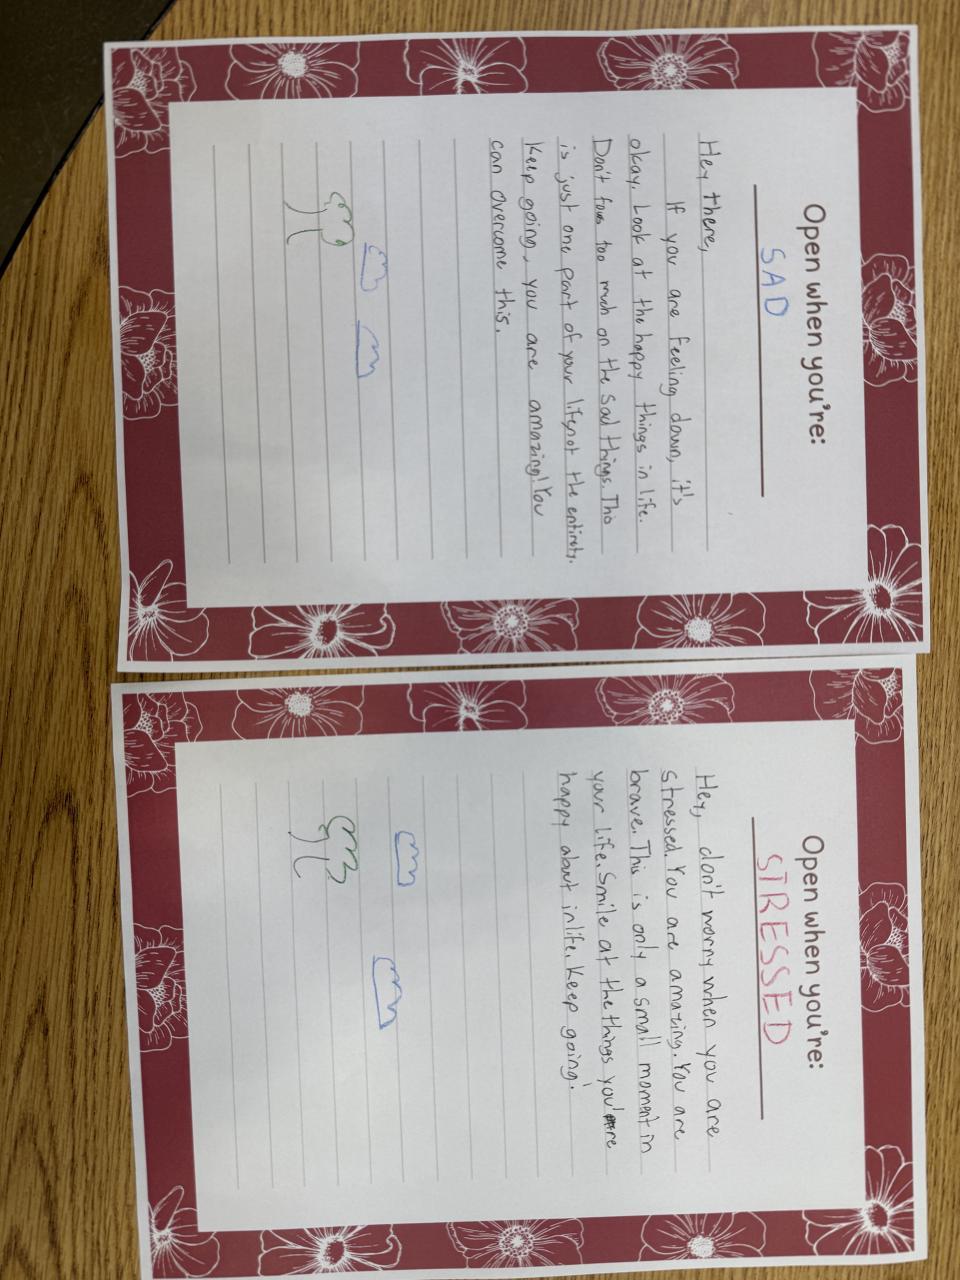 Open when you're:
SAD
Hey there,
If you are feeling down, it's
okay. Look at the happy things in life.
Don't focus too much on the sad things. This
is just one part of your life, not the entirety.
Keep going, you are amazing! You
can overcome this.
Open when you're:
STRESSED
Hey, don't worry when you are
stressed. You are amazing. You are
brave. This is only a small moment in
your life. Smile at the things you're
happy about in life. Keep going!